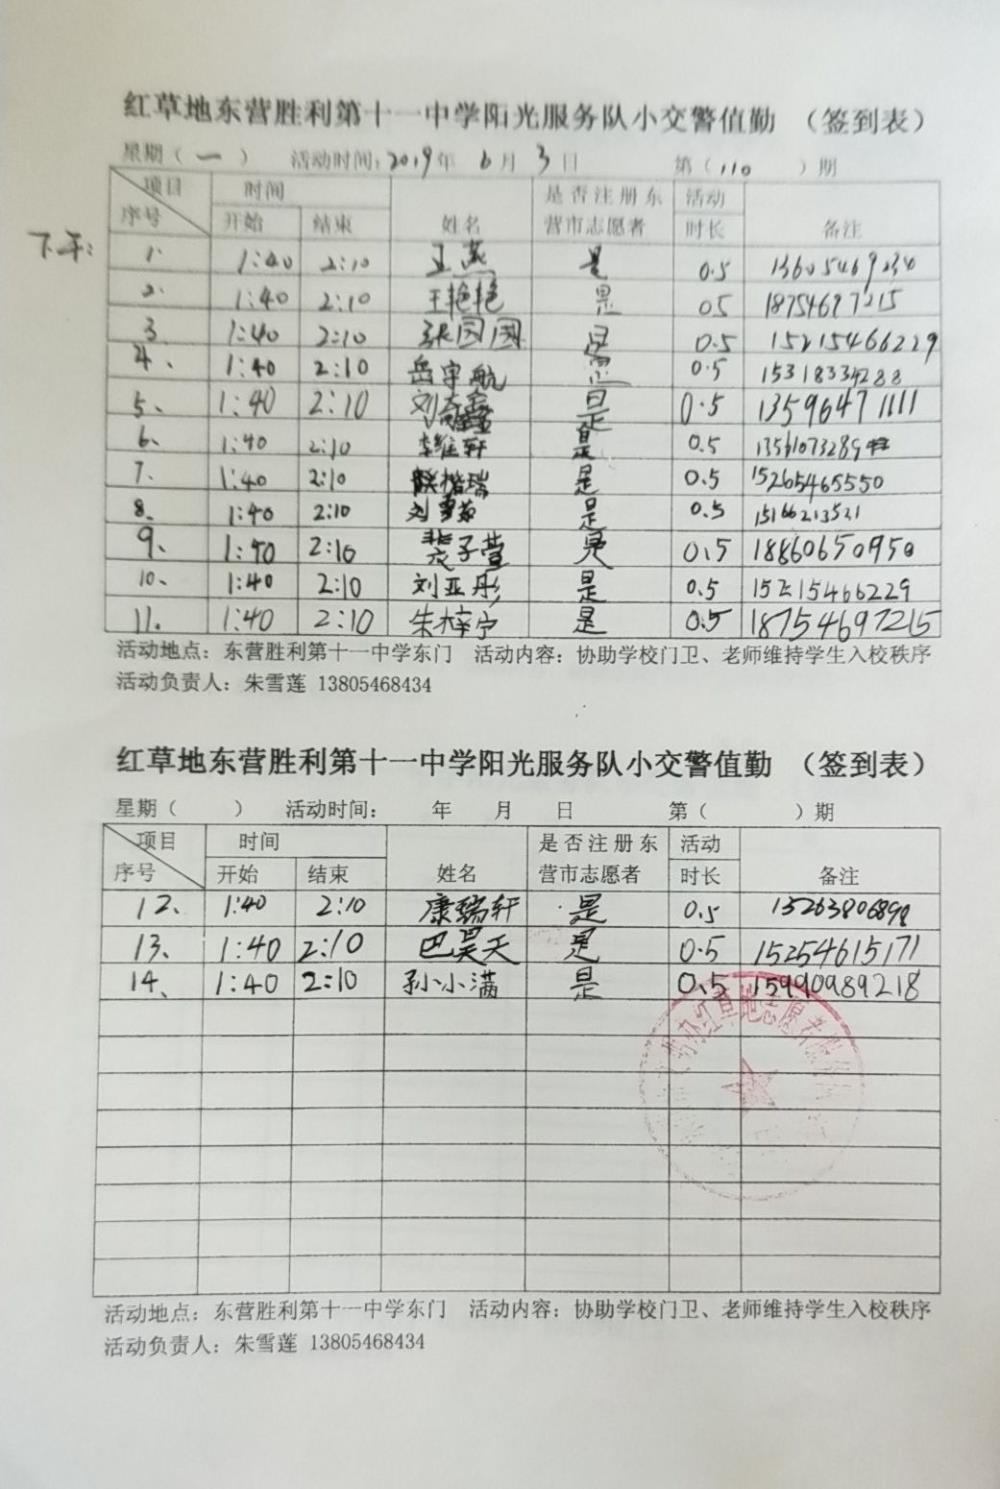 红草地东营胜利第十一中学阳光服务队小交警值勤 （签到表）
星期（一） 活动时间：2019年 6月 3日 第（110 ）期
项目 时间 是否注册东 活动
序号 开始 结束 姓名 营市志愿者 时长 备注
下午：
1. 1:40 2:10 王燕 是 0.5 13605469234
2. 1:40 2:10 王艳艳 是 05 18754697215
3 1:40 2:10 张园园 是 0.5 15215466229
4、 1:40 2:10 岳宇航 是 0.5 15318334288
5、 1:40 2:10 刘 是 0.5 13596471111
6、 1:40 2:10 李维轩 是 0.5 1356107328
7. 1:40 2:10 楷瑞 是 0.5 15265465550
8、 1:40 2:10 刘 是 0.5 15166213521
9、 1:40 2:10 裴子萱 是 0.5 18860650950
10、 1:40 2:10 刘亚彤 是 0.5 15215466229
11. 1:40 2:10 朱梓宁 是 0.5 18754697215
活动地点：东营胜利第十一中学东门 活动内容：协助学校门卫、老师维持学生入校秩序
活动负责人：朱雪莲 13805468434
红草地东营胜利第十一中学阳光服务队小交警值勤 （签到表）
星期（ ） 活动时间： 年 月 日 第（ ）期
项目 时间 是否注册东 活动
序号 开始 结束 姓名 营市志愿者 时长 备注
12、 1:40 2:10 康瑞轩 是 0.5 15263806898
13、 1:40 2:10 巴昊天 是 0.5 15254615171
14、 1:40 2:10 孙小满 是 0.5 15990989218
红草地志愿者服
活动地点：东营胜利第十一中学东门 活动内容：协助学校门卫、老师维持学生入校秩序
活动负责人：朱雪莲 13805468434